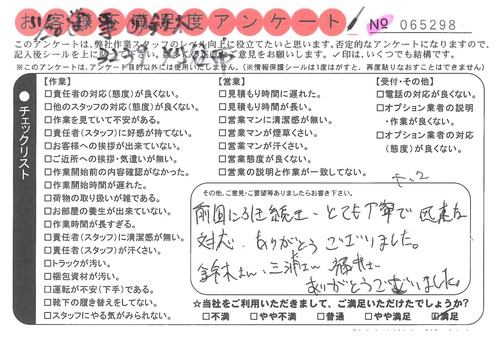 お客様満足度アンケート
No 065298
このアンケートは、弊社作業スタッフのレベル向上に役立てたいと思います。否定的なアンケートになりますので、
記入後シールを上に
お願い致します。✓印は、いくつでも結構です。
※このアンケートは、アンケート目的以外には使用いたしません。(※情報保護シールは1度はがすと、再度貼りなおすことはできません)
チェックリスト
【作業】
□責任者の対応(態度)が良くない。
□他のスタッフの対応(態度)が良くない。
□作業を見ていて不安がある。
□責任者(スタッフ)に好感が持てない。
□お客様への挨拶が出来ていない。
□ご近所への挨拶・気遣いが無い。
□作業開始前の内容確認がなかった。
□作業開始時間が遅れた。
□荷物の取り扱いが雑である。
□お部屋の養生が出来ていない。
□作業時間が長すぎる。
□責任者(スタッフ)に清潔感が無い。
□責任者(スタッフ)が汗くさい。
□トラックが汚い。
□梱包資材が汚い。
□運転が不安(下手)である。
□靴下の履き替えをしてない。
□スタッフにやる気がみられない。
【営業】
□見積もり時間に遅れた。
□見積もり時間が長い。
□営業マンに清潔感が無い。
□営業マンが煙草くさい。
□営業マンが汗くさい。
□営業態度が良くない。
□営業の説明と作業が一致してない。
【受付・その他】
□電話の対応が良くない。
□オプション業者の説明
・作業が良くない。
□オプション業者の対応
(態度)が良くない。
その他、ご意見・ご要望等ありましたらお書き下さい。
前回に引き続き、とても丁寧で
対応、ありがとうございました。
鈴木さん、三浦さん
ありがとうございました。
☆当社をご利用いただきまして、ご満足いただけたでしょうか?
□不満 □やや不満 □普通 □やや満足 ☑満足